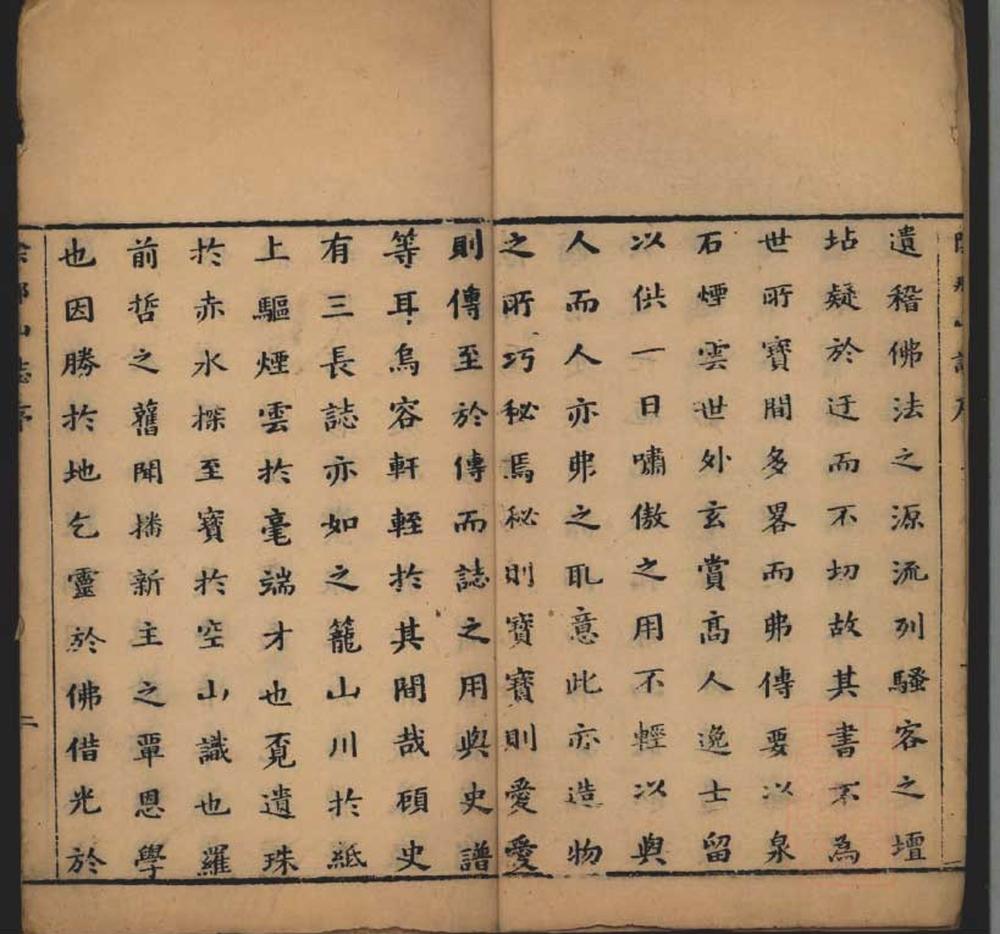 遺稽佛法之源流列騷客之壇
坫疑於迂而不切故其書不為
世所寶間多畧而弗傳要以泉
石煙雲世外玄賞高人逸士留
以供一日嘯傲之用不輕以與
人而人亦弗之耴意此亦造物
之所巧秘焉秘則寶寶則愛愛
則傳至於傳而誌之用與史譜
等耳烏容軒輊扵其間哉碩史
有三長誌亦如之籠山川扵紙
上驅煙雲扵毫端才也覓遺珠
扵赤水探至寶扵空山識也羅
前哲之舊聞播新主之覃恩學
也因勝扵地乞靈於佛借光於
山誌序 二